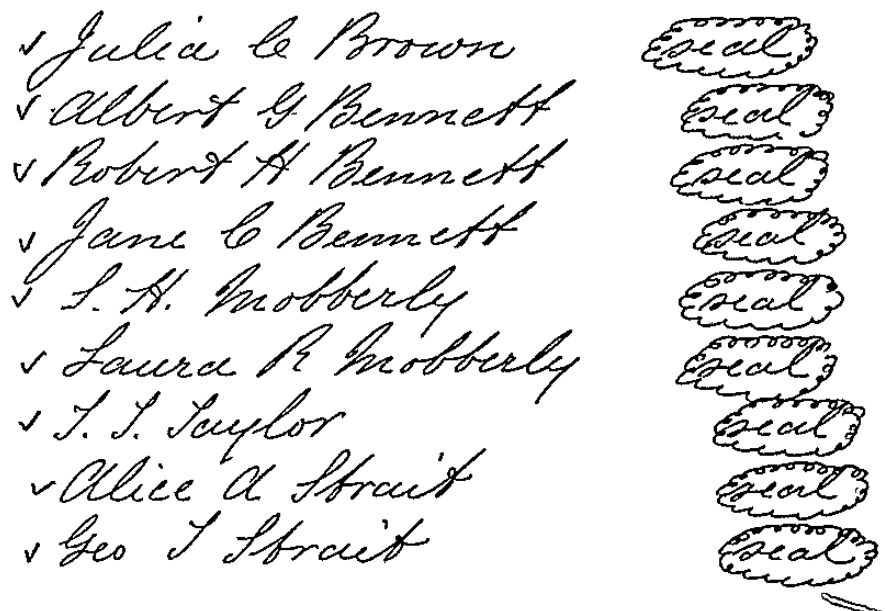 ✓ Julia C Brown seal
✓ Albert G Bennett seal
✓ Robert H Bennett seal
✓ Jane C Bennett seal
✓ S. H. Mobberly seal
✓ Laura R Mobberly seal
✓ T. T. Taylor seal
✓ Alice A Strait seal
✓ Geo T Strait seal